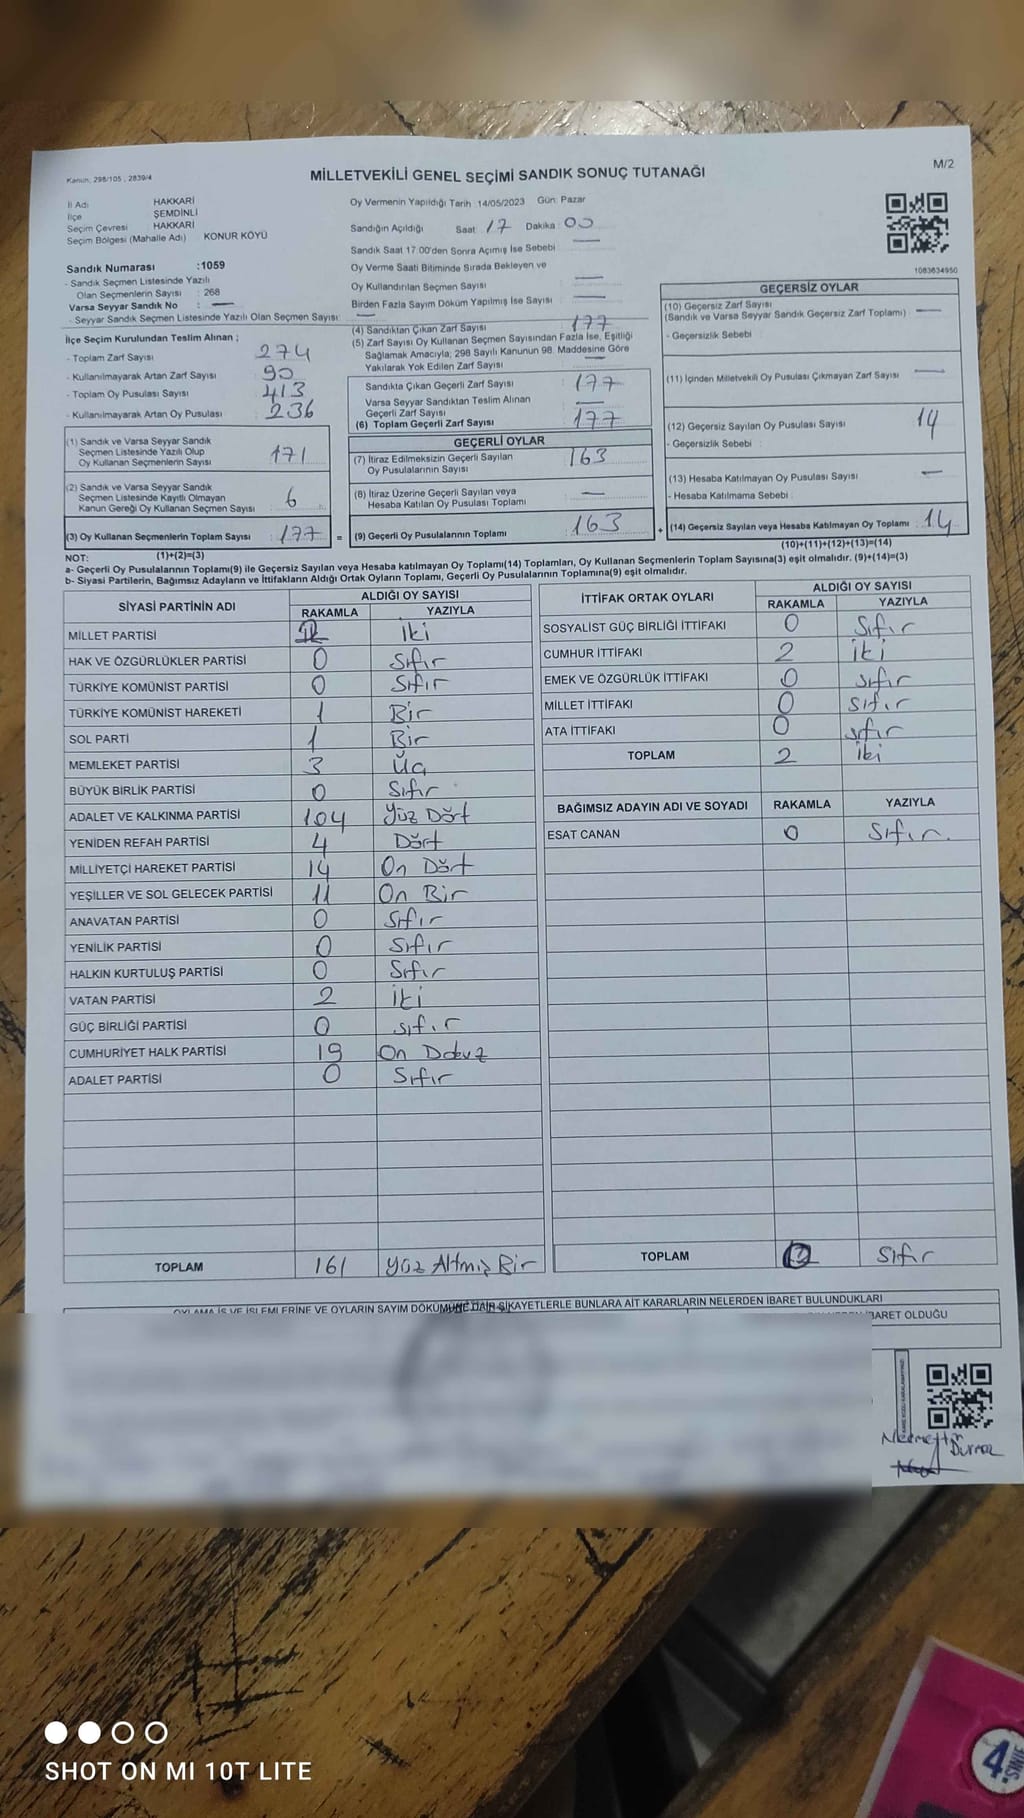 Kanun; 298/105 , 2839/4
MİLLETVEKİLİ GENEL SEÇİMİ SANDIK SONUÇ TUTANAĞI
M/2
İl Adı HAKKARİ
İlçe ŞEMDİNLİ
Seçim Çevresi HAKKARİ
Seçim Bölgesi (Mahalle Adı) KONUR KÖYÜ
Sandık Numarası :1059
- Sandık Seçmen Listesinde Yazılı
Olan Seçmenlerin Sayısı : 268
Varsa Seyyar Sandık No : —
- Seyyar Sandık Seçmen Listesinde Yazılı Olan Seçmen Sayısı: —
İlçe Seçim Kurulundan Teslim Alınan ;
- Toplam Zarf Sayısı : 274
- Kullanılmayarak Artan Zarf Sayısı : 90
- Toplam Oy Pusulası Sayısı : 413
- Kullanılmayarak Artan Oy Pusulası : 236
(1) Sandık ve Varsa Seyyar Sandık
Seçmen Listesinde Yazılı Olup
Oy Kullanan Seçmenlerin Sayısı : 171
(2) Sandık ve Varsa Seyyar Sandık
Seçmen Listesinde Kayıtlı Olmayan
Kanun Gereği Oy Kullanan Seçmen Sayısı : 6
(3) Oy Kullanan Seçmenlerin Toplam Sayısı : 177 =
Oy Vermenin Yapıldığı Tarih :14/05/2023 Gün: Pazar
Sandığın Açıldığı Saat : 17 Dakika : 00
Sandık Saat 17:00'den Sonra Açılmış İse Sebebi : —
Oy Verme Saati Bitiminde Sırada Bekleyen ve
Oy Kullandırılan Seçmen Sayısı : —
Birden Fazla Sayım Döküm Yapılmış İse Sayısı : —
(4) Sandıktan Çıkan Zarf Sayısı : 177
(5) Zarf Sayısı Oy Kullanan Seçmen Sayısından Fazla İse, Eşitliği
Sağlamak Amacıyla; 298 Sayılı Kanunun 98. Maddesine Göre
Yakılarak Yok Edilen Zarf Sayısı : —
Sandıkta Çıkan Geçerli Zarf Sayısı : 177
Varsa Seyyar Sandıktan Teslim Alınan
Geçerli Zarf Sayısı : —
(6) Toplam Geçerli Zarf Sayısı : 177
GEÇERLİ OYLAR
(7) İtiraz Edilmeksizin Geçerli Sayılan
Oy Pusulalarının Sayısı : 163
(8) İtiraz Üzerine Geçerli Sayılan veya
Hesaba Katılan Oy Pusulası Toplamı : —
(9) Geçerli Oy Pusulalarının Toplamı : 163 +
1083634950
GEÇERSİZ OYLAR
(10) Geçersiz Zarf Sayısı
(Sandık ve Varsa Seyyar Sandık Geçersiz Zarf Toplamı) : —
- Geçersizlik Sebebi :
(11) İçinden Milletvekili Oy Pusulası Çıkmayan Zarf Sayısı : —
(12) Geçersiz Sayılan Oy Pusulası Sayısı : 14
- Geçersizlik Sebebi :
(13) Hesaba Katılmayan Oy Pusulası Sayısı : —
- Hesaba Katılmama Sebebi :
(14) Geçersiz Sayılan veya Hesaba Katılmayan Oy Toplamı : 14
NOT: (1)+(2)=(3) (10)+(11)+(12)+(13)=(14)
a- Geçerli Oy Pusulalarının Toplamı(9) ile Geçersiz Sayılan veya Hesaba katılmayan Oy Toplamı(14) Toplamları, Oy Kullanan Seçmenlerin Toplam Sayısına(3) eşit olmalıdır. (9)+(14)=(3)
b- Siyasi Partilerin, Bağımsız Adayların ve İttifakların Aldığı Ortak Oyların Toplamı, Geçerli Oy Pusulalarının Toplamına(9) eşit olmalıdır.
SİYASİ PARTİNİN ADI ALDIĞI OY SAYISI
RAKAMLA YAZIYLA
MİLLET PARTİSİ İki
HAK VE ÖZGÜRLÜKLER PARTİSİ 0 Sıfır
TÜRKİYE KOMÜNİST PARTİSİ 0 Sıfır
TÜRKİYE KOMÜNİST HAREKETİ 1 Bir
SOL PARTİ 1 Bir
MEMLEKET PARTİSİ 3 Üç
BÜYÜK BİRLİK PARTİSİ 0 Sıfır
ADALET VE KALKINMA PARTİSİ 104 Yüz Dört
YENİDEN REFAH PARTİSİ 4 Dört
MİLLİYETÇİ HAREKET PARTİSİ 14 On Dört
YEŞİLLER VE SOL GELECEK PARTİSİ 11 On Bir
ANAVATAN PARTİSİ 0 Sıfır
YENİLİK PARTİSİ 0 Sıfır
HALKIN KURTULUŞ PARTİSİ 0 Sıfır
VATAN PARTİSİ 2 İki
GÜÇ BİRLİĞİ PARTİSİ 0 sıfır
CUMHURİYET HALK PARTİSİ 19 On Dokuz
ADALET PARTİSİ 0 Sıfır
TOPLAM 161 Yüz Altmış Bir
İTTİFAK ORTAK OYLARI ALDIĞI OY SAYISI
RAKAMLA YAZIYLA
SOSYALİST GÜÇ BİRLİĞİ İTTİFAKI 0 Sıfır
CUMHUR İTTİFAKI 2 İki
EMEK VE ÖZGÜRLÜK İTTİFAKI 0 sıfır
MİLLET İTTİFAKI 0 sıfır
ATA İTTİFAKI 0 sıfır
TOPLAM 2 İki
BAĞIMSIZ ADAYIN ADI VE SOYADI RAKAMLA YAZIYLA
ESAT CANAN 0 Sıfır.
TOPLAM Sıfır
OYLAMA İŞ VE İŞLEMLERİNE VE OYLARIN SAYIM DÖKÜMÜNE DAİR ŞİKAYETLERLE BUNLARA AİT KARARLARIN NELERDEN İBARET BULUNDUKLARI
İBARET OLDUĞU
Necmettin
Durmaz
SHOT ON MI 10T LITE
4.
SINIF